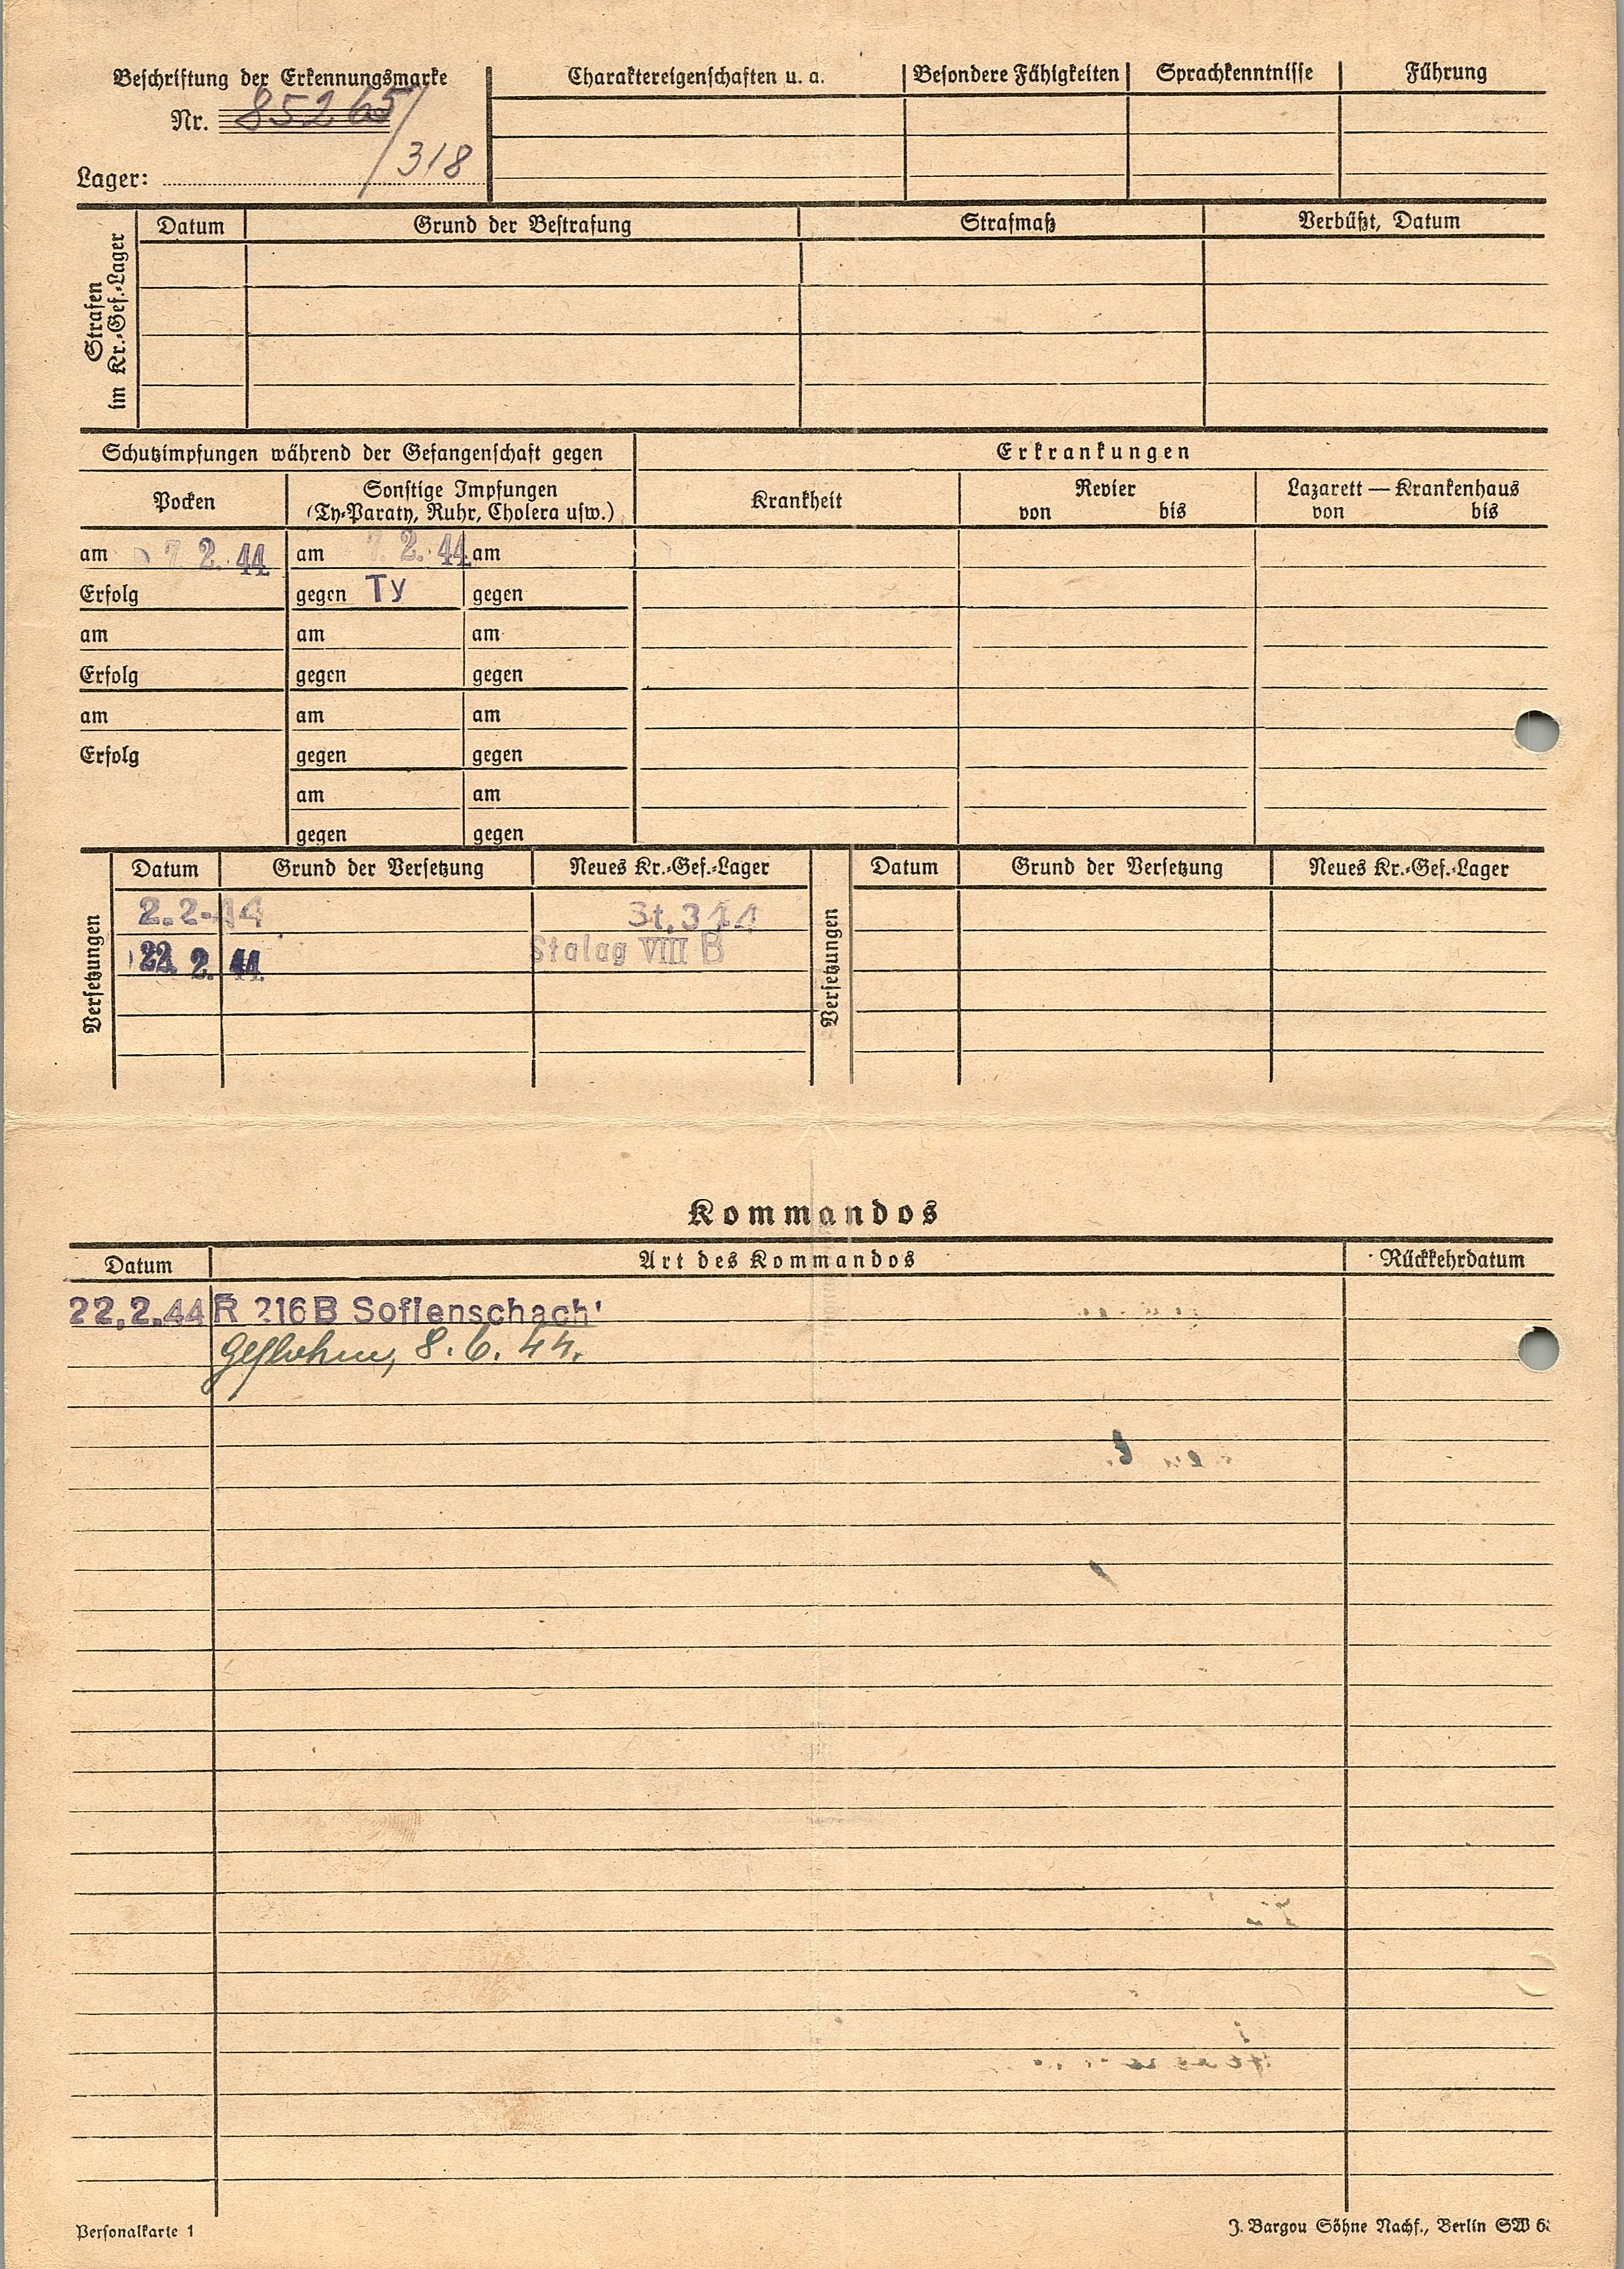 Beschriftung der Erkennungsmarke
Nr. 85265/
Lager: 318
Charaktereigenschaften u. a. Besondere Fähigkeiten Sprachkenntnisse Führung
Strafen
im Kr.-Gef.-Lager
Datum Grund der Bestrafung Strafmaß Verbüßt, Datum
Schutzimpfungen während der Gefangenschaft gegen
Erkrankungen
Pocken
Sonstige Impfungen
(Ty-Paraty, Ruhr, Cholera usw.)
Krankheit
Revier
von bis
Lazarett — Krankenhaus
von bis
am 7 2. 44 am 7. 2. 44 am
Erfolg gegen Ty gegen
am am am
Erfolg gegen gegen
am am am
Erfolg gegen gegen
am am
gegen gegen
Versetzungen
Datum Grund der Versetzung Neues Kr.-Gef.-Lager
2.2-44 St. 344
22. 2. 44. Stalag VIII B
Versetzungen
Datum Grund der Versetzung Neues Kr.-Gef.-Lager
Kommandos
Datum Art des Kommandos Rückkehrdatum
22.2.44 R 216 B Sofienschach
geflohen, 8. 6. 44.
Personalkarte 1
J. Bargou Söhne Nachf., Berlin SW 6